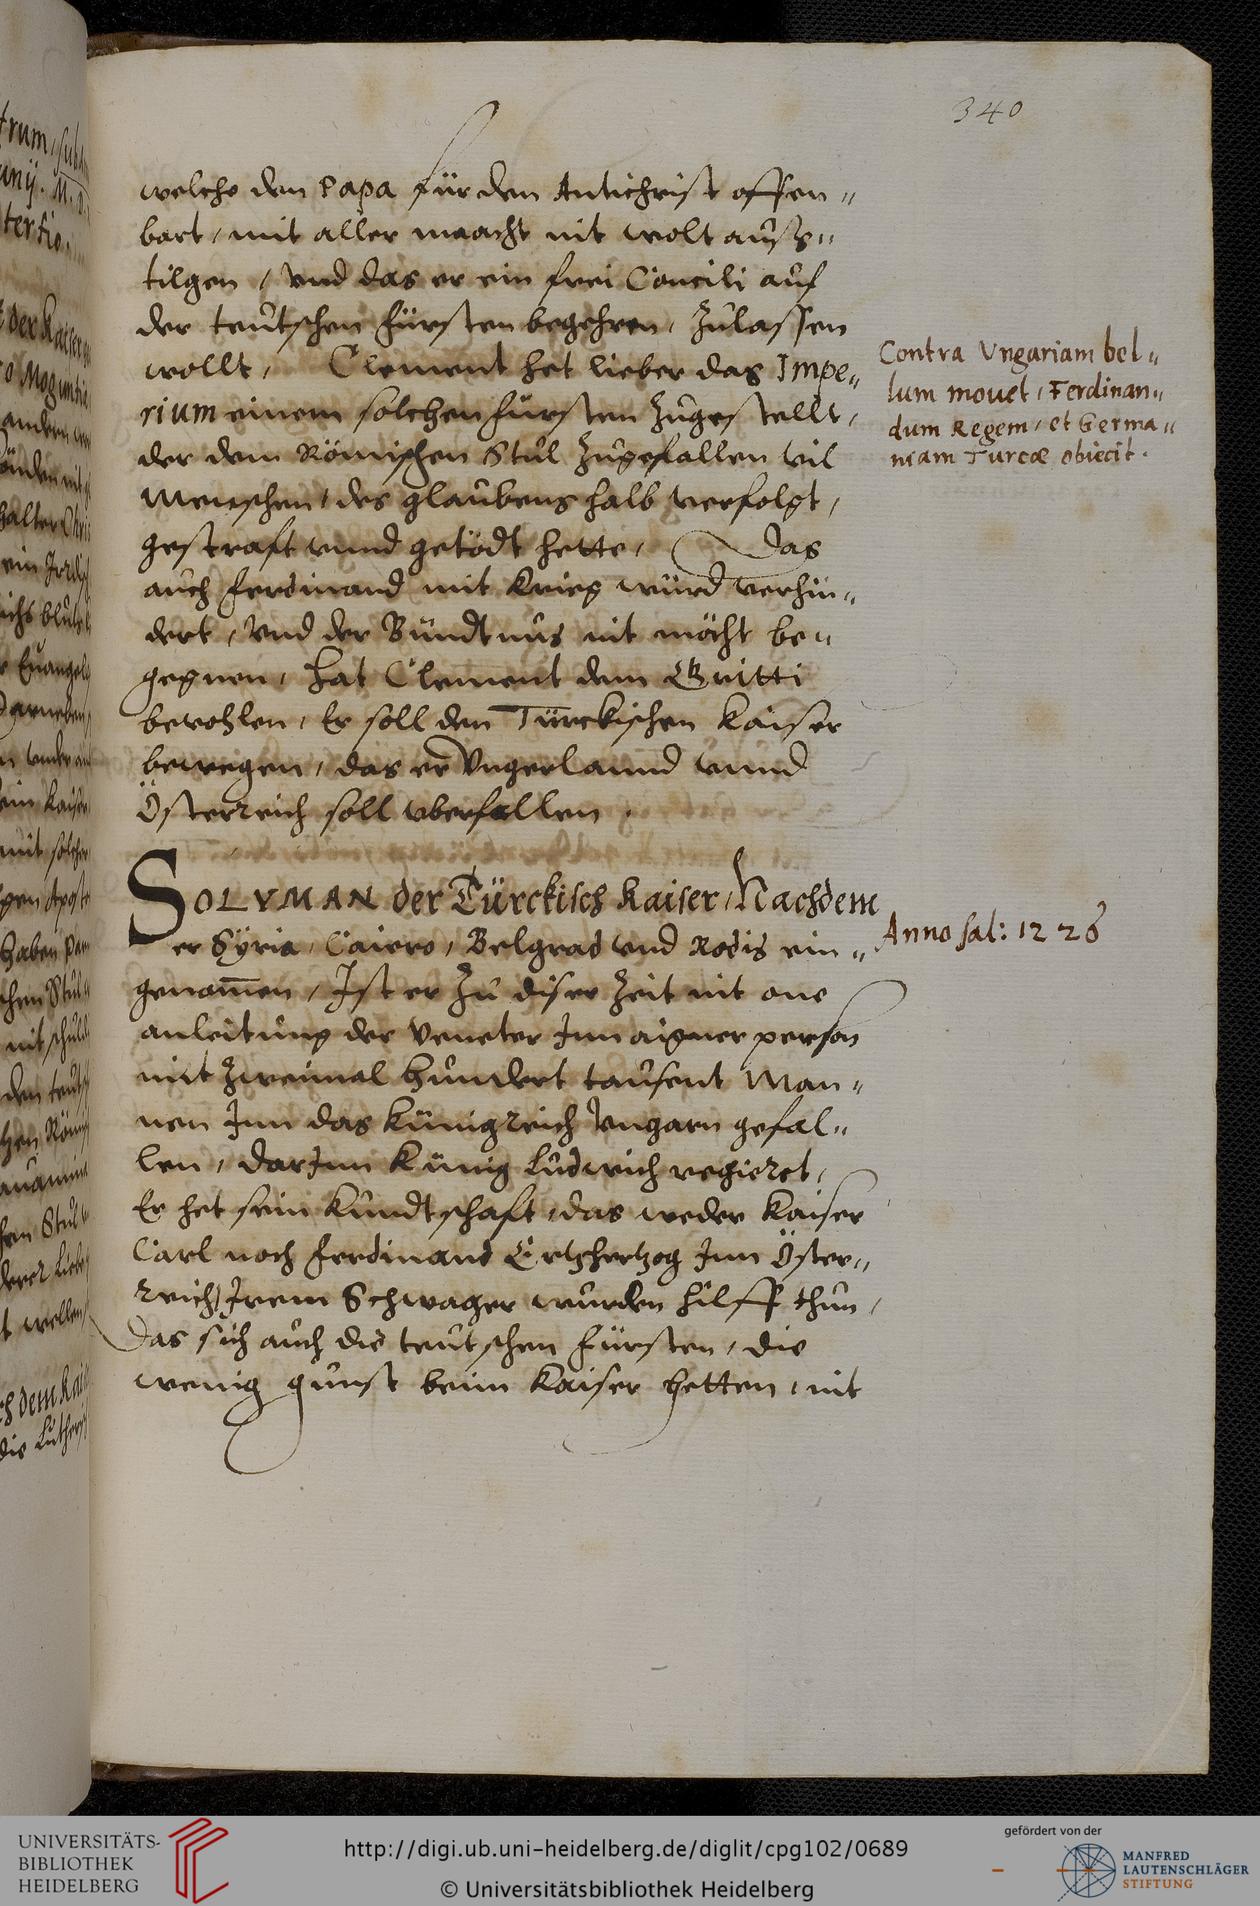 340
welche den Papa für den Antichrist offen„
bart, mit aller maacht nit wolt ausz„
tilgen, vnd das er ein frei Concili auf
der teutschen fürsten begehren, zulassen
wollt, Clement het lieber das Impe„
rium einem solchen fürsten zugestellt,
der dem Römischen Stul zugefallen vil
Menschen, des glaubens halb verfolgt,
gestraft vnnd getödt hette, Das
auch ferdinand mit krieg würd verhin„
dert, vnd der Bündtnus nit möcht be„
gegnen, hat Clement dem Gritti
bevohlen, Er soll den Türckischen kaiser
bewegen, das er Vngerlannd vnnd
Österreich soll vberfallen.
Contra Vngariam bel„
lum mouet, Ferdinan„
dum Regem, et Germa„
niam Turcæ obiecit.
SOLYMAN der Türckisch kaiser, Nachdem
er Sÿria, Cairo, Belgrad vnd Rodis ein„
genom̅en, Ist er zu diser zeit nit one
anleitung der Veneter Inn aigner person
mit zweimal hundert tausent Man„
nen Inn das künigreich Vngarn gefal„
len, darinn künig Ludwich regieret,
Er het sein kundtschaft, das weder kaiser
Carl noch ferdinand Ertzhertzog Inn Öster„
reich, Irem Schwager wurden hilff thun,
das sich auch die teutschen fürsten, die
wenig gunst beim kaiser hetten, nit
Anno sal: 1226
trum, sub
ter tio.
der kaiser
andern
halter
Euangel
Darneben
ein kaiser
mit solcher
gen Apost
haben
schen Stul
den teut
Stul
wellen,
dem kai
die Luther
UNIVERSITÄTS-
BIBLIOTHEK
HEIDELBERG
http://digi.ub.uni-heidelberg.de/diglit/cpg102/0689
© Universitätsbibliothek Heidelberg
gefördert von der
MANFRED
LAUTENSCHLÄGER
STIFTUNG